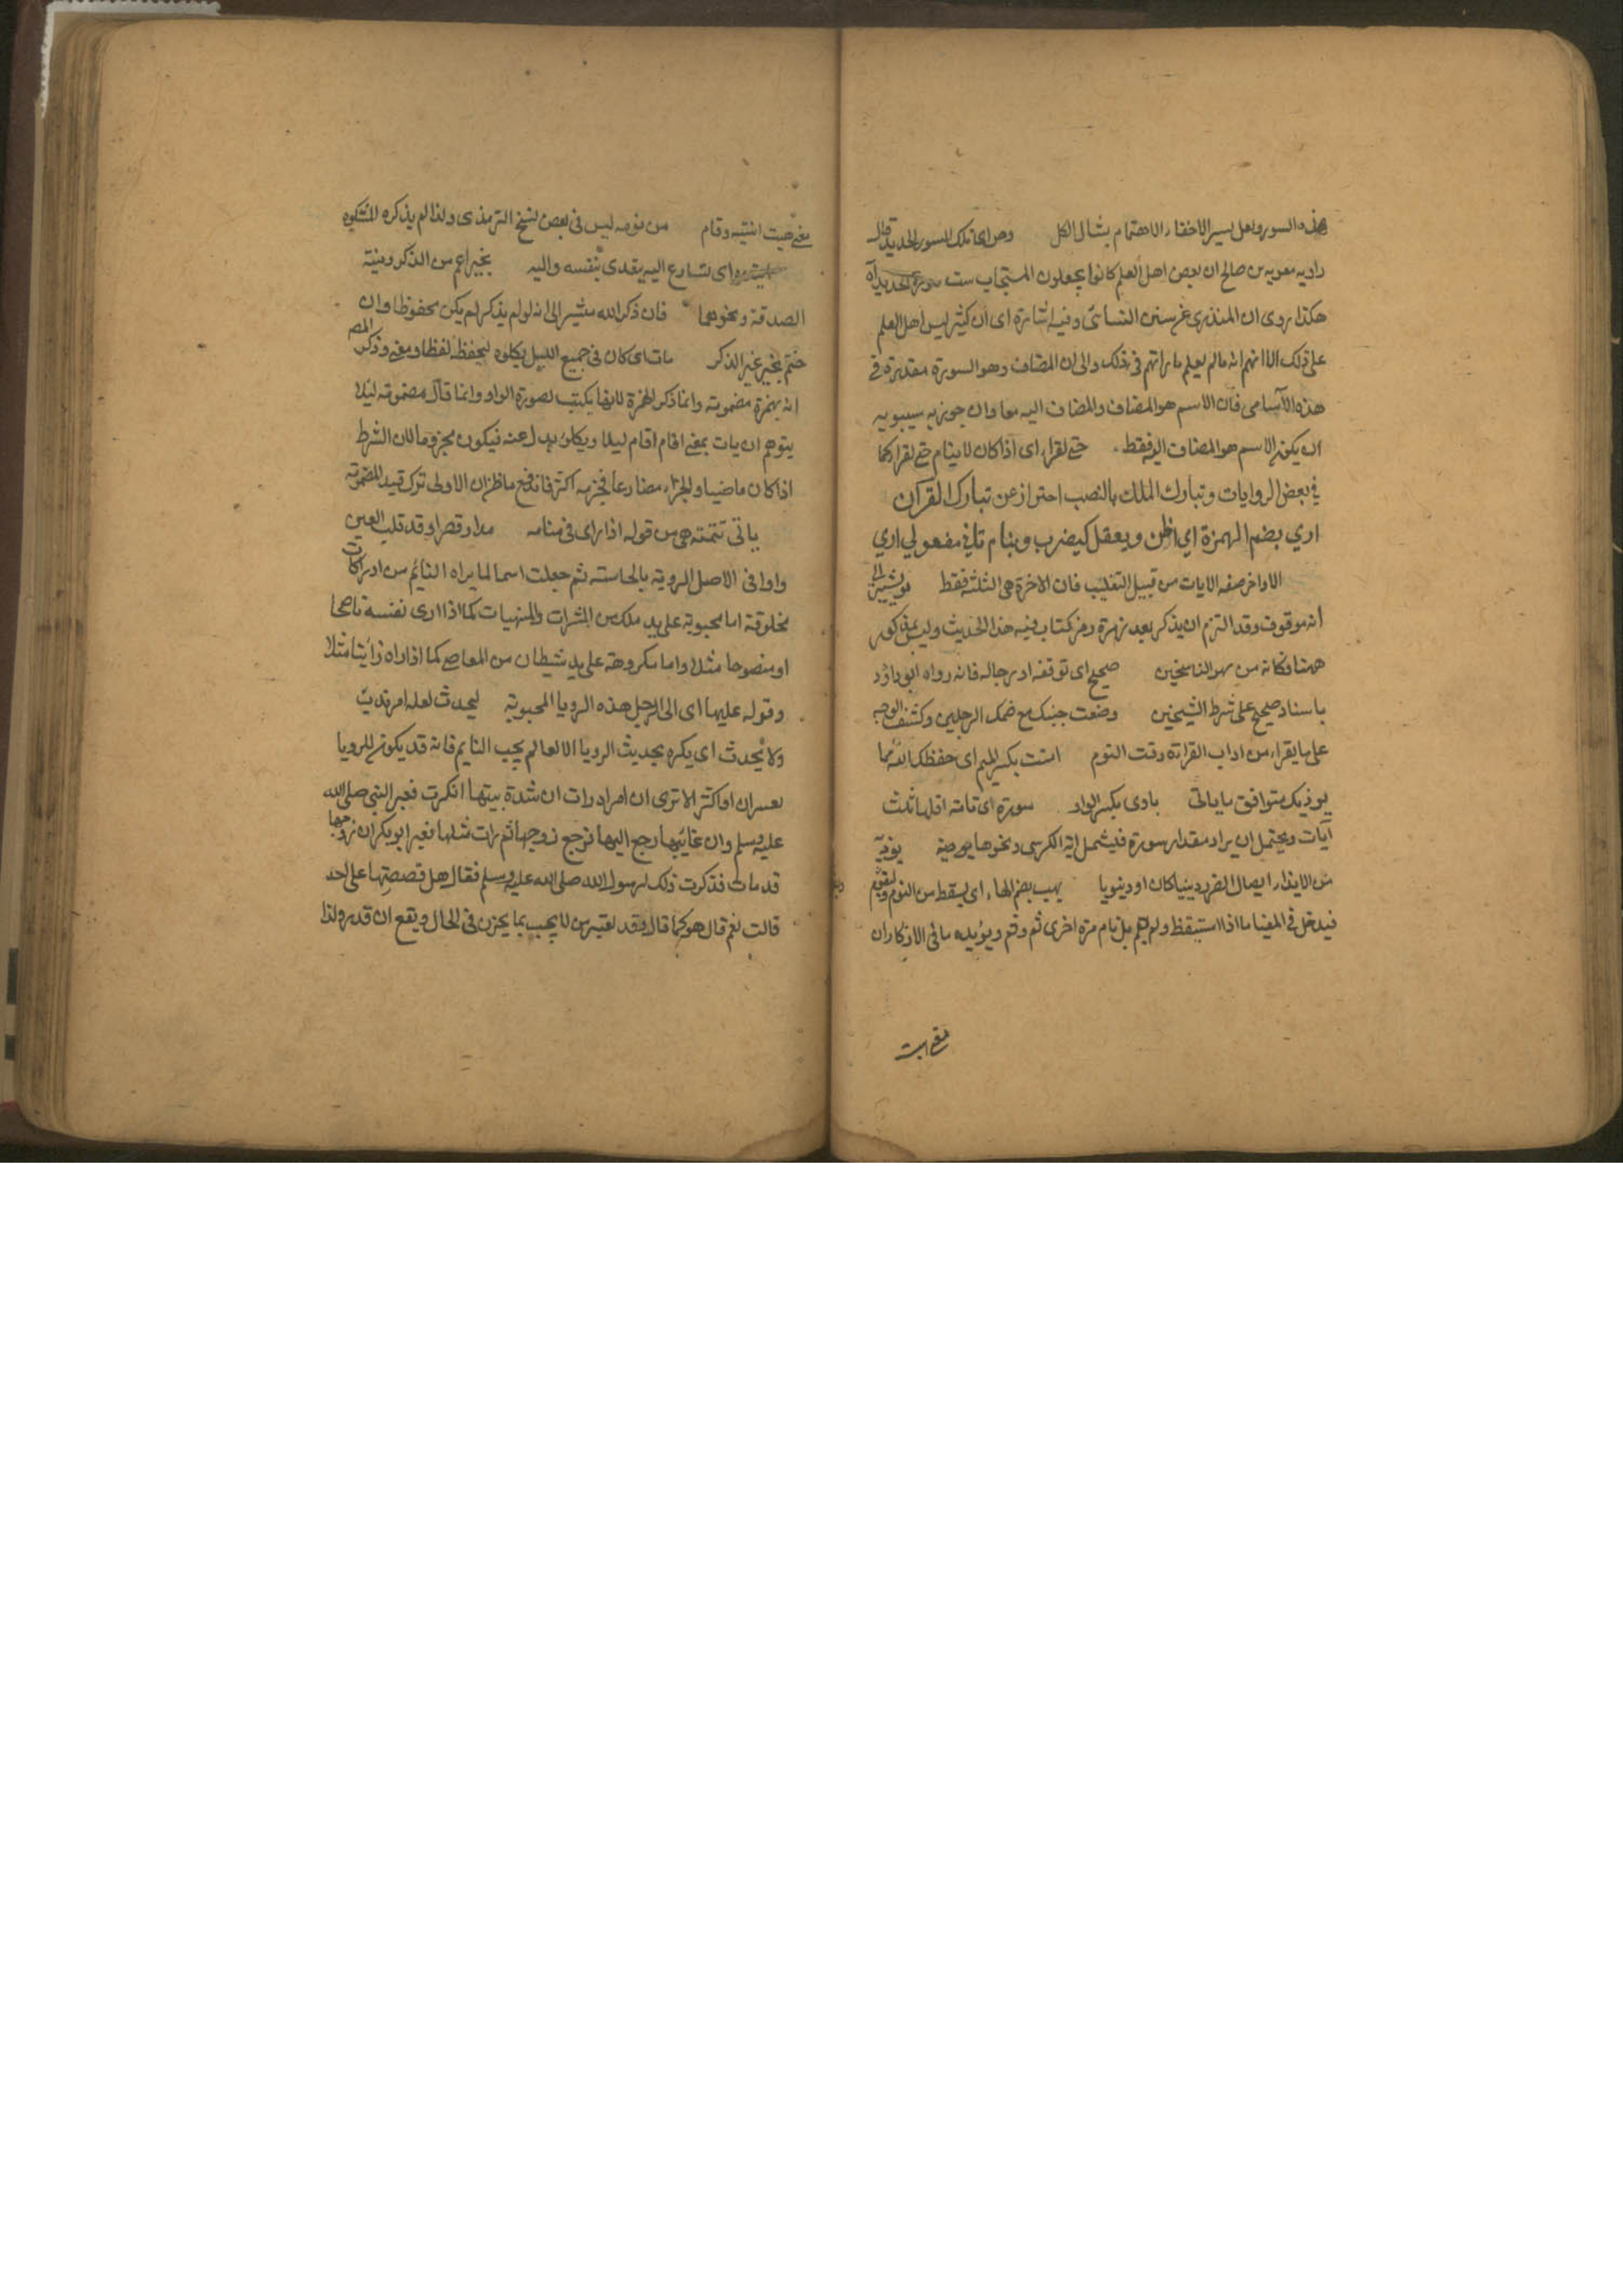 هذه السور ولعل لسير الاخفاء الاهتمام بشال الكل وهن اى تلك السور الحديد قال
راويه معويه بن صالح ان بعض اهل العلم كانوا يجعلون المستجاب ست سورة الحديد اه
هكذا روى ان المنذرى عن سنن النسائى وفيه اشارة اى ان كثير ليس اهل العلم
على ذلك الا انهم انه مالم يعلم ما براتهم فى ذلك والى ان المضاف وهو السورة مقدرة فى
هذه الآسامى فان الاسم هو المضاف والمضاف اليه معا وان جوز به سيبويه
ان يكون الاسم هو المضاف اليه فقط حتى لقراء اى اذا كان لا ينام حتى لقرا كما
في بعض الروايات وتبارك الملك بالنصب احتراز عن تبارك القرآن
اري بضم الهمزة اي اظن ويعقل كيضرب وينام ثاني مفعولي اري
الاواخر صفه الايات من قبيل التغليب فان الاخرة هى الثلثة فقط مو يشير الى
انه موقوف وقد التزم ان يذكر بعد زهرة رمز كتاب فيه هذا الحديث وليس بمذكور
ههنا فكانه من سهو الناسخين صحيح اى توقفه او رجاله فانه رواه ابو داؤد
باسناد صحيح على شرط الشيخين وضعت جنبك مع ضمك الرجلين وكشف الوجه
على ما يقراء من اداب القراءة وقت النوم امنت بكسر الميم اى حفظك الله مما
يوذيك متوافق ما ياتى باوى بكسر الواو سورة اى تامة اقلها ثلث
آيات ويحتمل ان يراد مقدار سورة فيشمل اية الكرسى ونحوها يو صية يوذيه
من الايذاء ايصال الضر دينيا كان او دنيويا يهب بضم الهاء اى يسقط من النوم ويقوم
فيدخل فى المغيا ما اذا استيقظ ولم يقم بل نام مرة اخرى ثم وقم ويؤيده ما فى الاذكار ان
معنى هبت
معنى هبت انتبه وقام من نومه ليس فى بعض نسخ الترمذى ولذا لم يذكره المشكوة
ابتدره اى تسارع اليه يتعدى بنفسه واليه بخير اعم من الذكر ونية
الصدقة ونحوهما فان ذكر الله مشير الى انه لو لم يذكر لم يكن محفوظا وان
ختم بخير غير الذكر مات اى كان فى جميع الليل يكلوه ليحفظه لفظا ومعنى وذكر المص
انه بهمزة مضمومة وانما ذكر الهمزة لانها يكتب بصورة الواو وانما قال مضمومة ليلا
يتوهم ان يات بمعنى اقام اقام ليلا ويكلؤ بدل عنه فيكون مجزوما لان الشرط
اذا كان ماضيا والجزاء مضارعا فجزمه اكثر فاندفع ما ظن ان الاولى ترك قيد المضمومة
ياتى تتمته هى من قوله اذا راى فى منامه مدا وقصرا وقد قلب العين
واوا فى الاصل الروية بالحاسة ثم جعلت اسما لما يراه النائم من ادراكات
مخلوقة اما محبوبة على يد ملك من المبشرات والمنهيات كما اذا ارى نفسه ناصحا
او منصوحا مثلا واما مكروهة على يد شيطان من المعاصى كما اذا راه زانيا مثلا
وقوله عليها اى الى الرجل هذه الرويا المحبوبة ليحدث لعله امر ندبى
ولا يحدث اى يكره تحديث الرويا الا لعالم يحب النايم فانه قد يكون للرويا
تعبيران او اكثر الا ترى ان امراة رات ان شدة بيتها انكسرت فعبر النبى صلى الله
عليه وسلم وان غائبها رجع اليها فرجع زوجها ثم رات مثلها فعبر ابوبكر ان زوجها
قد مات فذكرت ذلك لرسول الله صلى الله عليه وسلم فقال هل قصصتها على احد
قالت نعم قال هو كما قال وقد تعبر من لا يحب بما يحزن فى الحال ويقع ان قدر ولذا